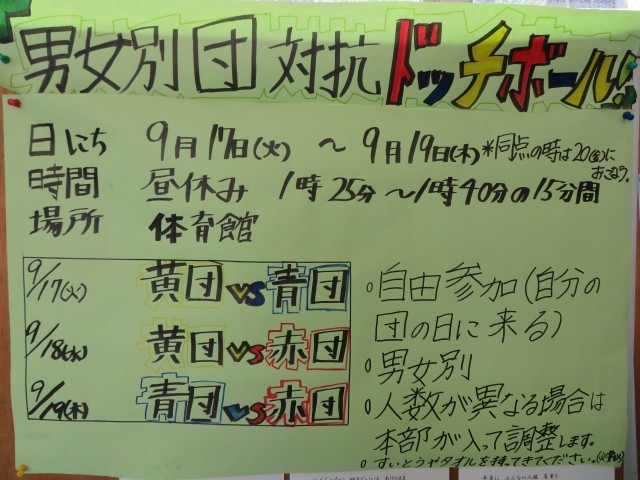 男女別団対抗ドッチボール!!
日にち 9月17日(火) ～ 9月19日(木) *同点の時は20(金)に
おこなう。
時間 昼休み 1時25分～1時40分の15分間
場所 体育館
9/17(火) 黄団 vs 青団
9/18(水) 黄団 vs 赤団
9/19(木) 青団 vs 赤団
○自由参加(自分の
団の日に来る)
○男女別
○人数が異なる場合は
本部が入って調整します。
○すいとうやタオルを持てきてください。